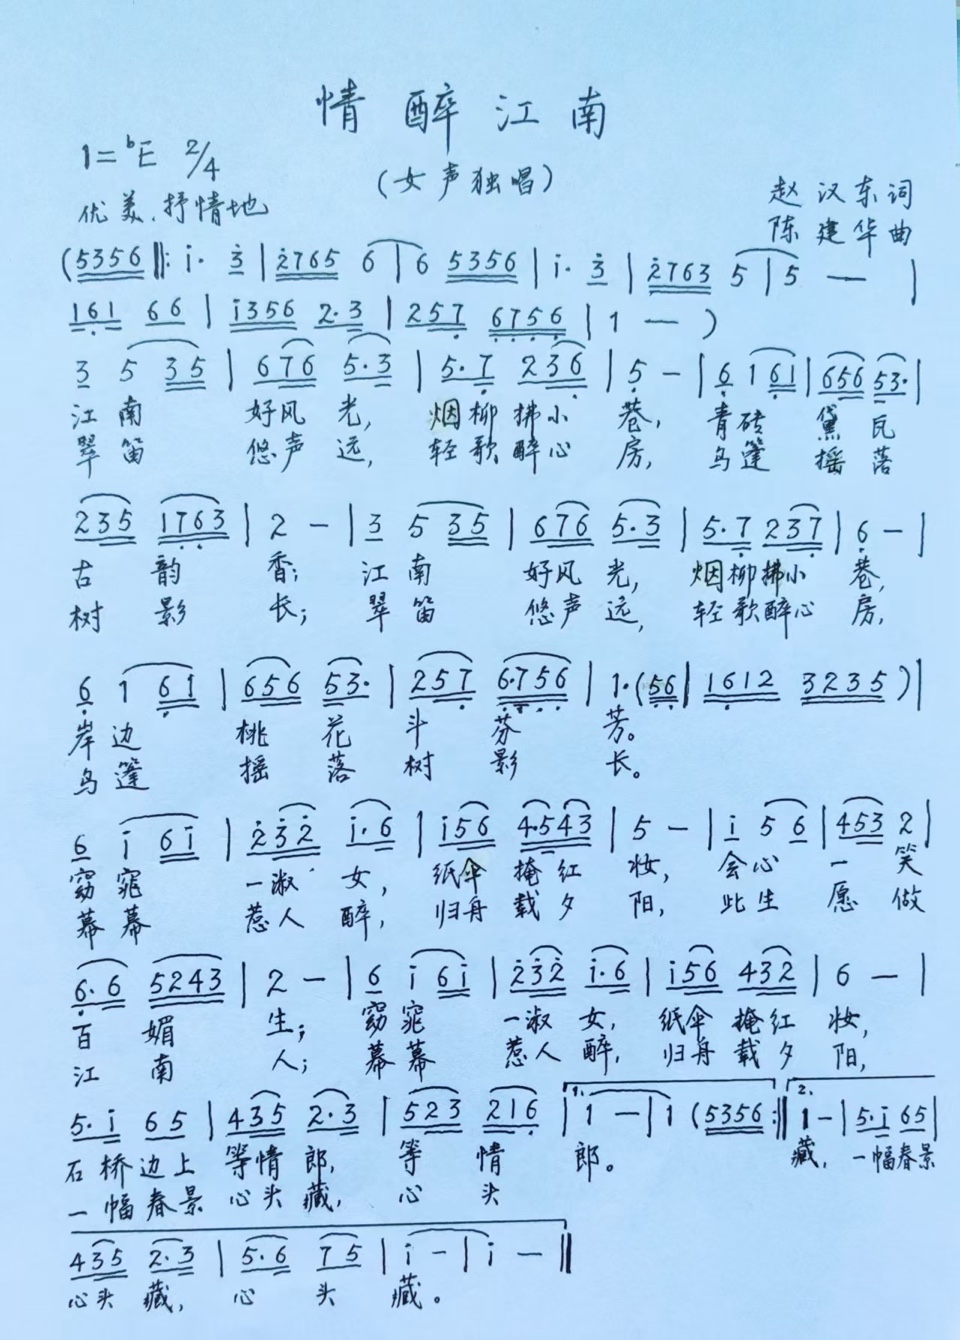 情醉江南
1=ᵇE 2/4
(女声独唱)
优美.抒情地
赵汉东词
陈建华曲
(5356 ‖: i· 3 | 2765 6 | 6 5356 | i· 3 | 2763 5 | 5 — |
161 66 | i356 2·3 | 257 6756 | 1 — )
3 5 35 | 676 5·3 | 5·7 236 | 5 — | 6 1 61 | 656 53· |
江南 好风光, 烟柳拂小巷, 青砖黛瓦
翠笛 悠声远, 轻歌醉心房, 乌篷摇落
235 1763 | 2 — | 3 5 35 | 676 5·3 | 5·7 237 | 6 — |
古韵香; 江南 好风光, 烟柳拂小巷,
树影长; 翠笛 悠声远, 轻歌醉心房,
6 1 61 | 656 53· | 257 6·756 | 1· (56 | 1612 3235 ) |
岸边 桃花斗芬芳。
乌篷 摇落树影长。
6 i 6i | 232 i·6 | i56 4·543 | 5 — | i 5 6 | 453 2 |
窈窕 一淑女, 纸伞掩红妆, 会心一笑
幕幕 惹人醉, 归舟载夕阳, 此生愿做
6·6 5243 | 2 — | 6 i 6i | 232 i·6 | i56 432 | 6 — |
百媚生; 窈窕 一淑女, 纸伞掩红妆,
江南人; 幕幕 惹人醉, 归舟载夕阳,
5·i 65 | 435 2·3 | 523 216 | 1. 1 — | 1 (5356 :‖ 2. 1 — | 5·i 65 |
石桥边上 等情郎, 等情郎。 藏, 一幅春景
一幅春景 心头藏, 心头
435 2·3 | 5·6 75 | i — | i — ‖
心头藏, 心头藏。